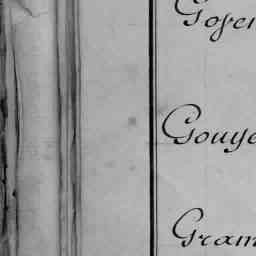 Goyer
Gouye
Gram